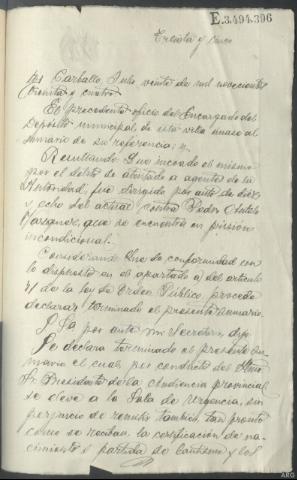 E.3.494.396
Treinta y cinco
Carballo, Julio veinte de mil novecientos
treinta y cuatro
El precedente oficio del Encargado del
Depósito municipal de esta villa unase al
sumario de su referencia; y,
Resultando: Que incoado el mismo
por el delito de atentado a agentes de la
Autoridad, fué dirigido por auto de diez
y ocho del actual contra Pedro
que se encuentra en prision
incondicional.
Considerando: Que de conformidad con
lo dispuesto en el apartado a) del articulo
de la ley de Orden Público, procede
declarar terminado el presente sumario.
S Sª por ante mi Secretario, dijo:
Se declara terminado el presente su-
mario el cual por conducto del Ilmo
Sr. Presidente de la Audiencia provincial
se eleve a la Sala de Urgencia, sin
perjuicio de remitir tambien, tan pronto
como se reciban, la certificación de na-
cimiento o partida de bautismo y los
ARG